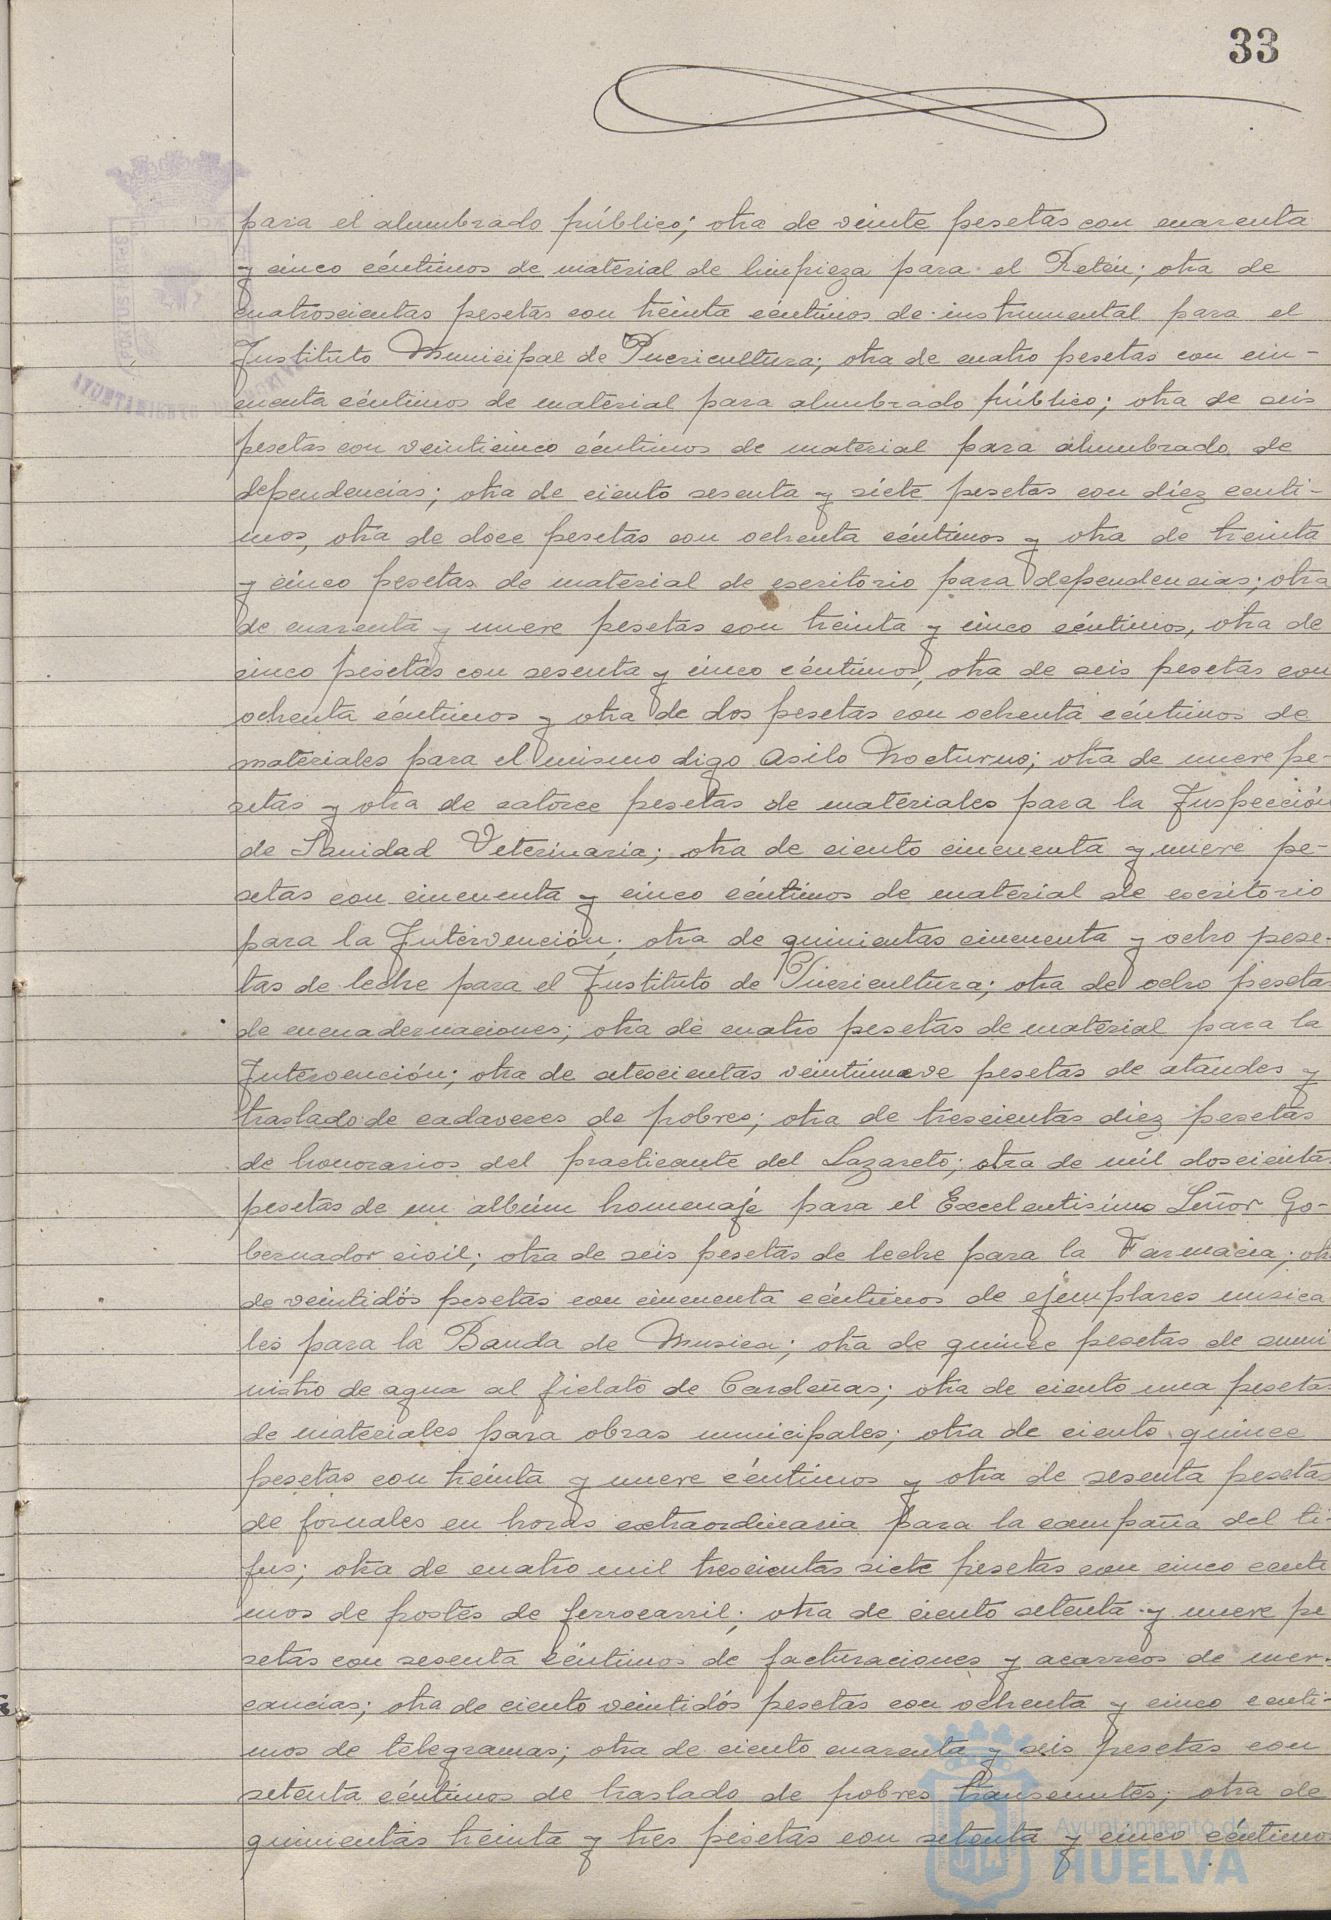 33
para el alumbrado público; otra de veinte pesetas con cuarenta
y cinco céntimos de material de limpieza para el Retén; otra de
cuatroscientas pesetas con treinta céntimos de instrumental para el
Instituto Municipal de Puericultura; otra de cuatro pesetas con cin-
cuenta céntimos de material para alumbrado público; otra de seis
pesetas con veinticinco céntimos de material para alumbrado de
dependencias; otra de ciento sesenta y siete pesetas con diez centi-
mos, otra de doce pesetas con ochenta céntimos y otra de treinta
y cinco pesetas de material de escritorio para dependencias; otra
de cuarenta y nueve pesetas con treinta y cinco céntimos, otra de
cinco pesetas con sesenta y cinco céntimos, otra de seis pesetas con
ochenta céntimos y otra de dos pesetas con ochenta céntimos de
materiales para el mismo digo Asilo Nocturno; otra de nueve pe-
setas y otra de catorce pesetas de materiales para la Inspección
de Sanidad Veterinaria; otra de ciento cincuenta y nueve pe-
setas con cincuenta y cinco céntimos de material de escritorio
para la Intervención; otra de quinientas cincuenta y ocho pese-
tas de leche para el Instituto de Puericultura; otra de ocho peseta
de encuadernaciones; otra de cuatro pesetas de material para la
Intervención; otra de setescientas veintinueve pesetas de ataudes y
traslado de cadaveres de pobres; otra de trescientas diez pesetas
de honorarios del practicante del Lazareto; otra de mil doscienta
pesetas de un albúm homenaje para el Excelentisimo Señor Go-
bernador civil; otra de seis pesetas de leche para la Farmacia; otr
de veintidós pesetas con cincuenta céntimos de ejemplares musica
les para la Banda de Musica; otra de quince pesetas de sumi
nistro de agua al fielato de Cardeñas; otra de ciento una pesetas
de materiales para obras municipales; otra de ciento quince
pesetas con treinta y nueve céntimos y otra de sesenta pesetas
de jornales en horas extraordinaria para la campaña del ti-
fus; otra de cuatro mil trescientas siete pesetas con cinco centi
mos de postes de ferrocarril; otra de ciento setenta y nueve pe
setas con sesenta céntimos de facturaciones y acarreos de mer-
cancias; otra de ciento veintidós pesetas con ochenta y cinco centi-
mos de telegramas; otra de ciento cuarenta y seis pesetas con
setenta céntimos de traslado de pobres transeuntes; otra de
quinientas treinta y tres pesetas con setenta y cinco céntimo
Ayuntamiento de
HUELVA